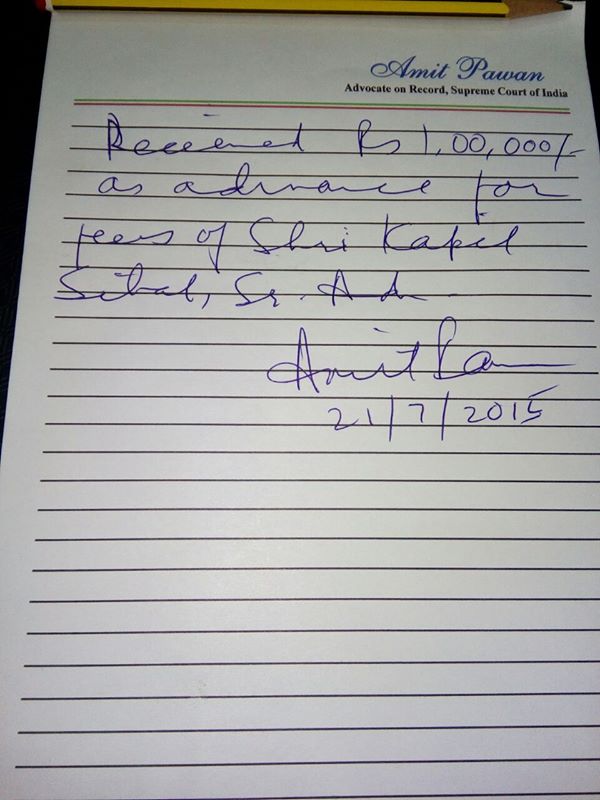 Amit Pawan
Advocate on Record, Supreme Court of India
Received Rs 1,00,000/-
as advance for
fees of Shri Kapil
Sibal, Sr. Ad
Amit Pa
21/7/2015